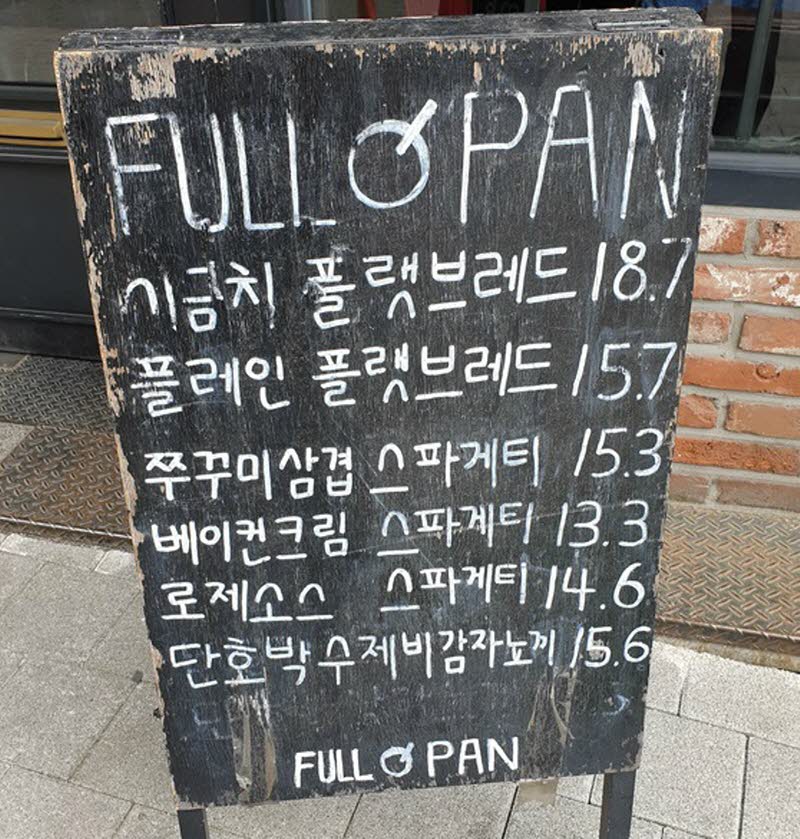 FULL PAN
시금치 플랫브레드 18.7
플레인 플랫브레드 15.7
쭈꾸미삼겹 스파게티 15.3
베이컨크림 스파게티 13.3
로제소스 스파게티 14.6
단호박수제비감자뇨끼 15.6
FULL PAN